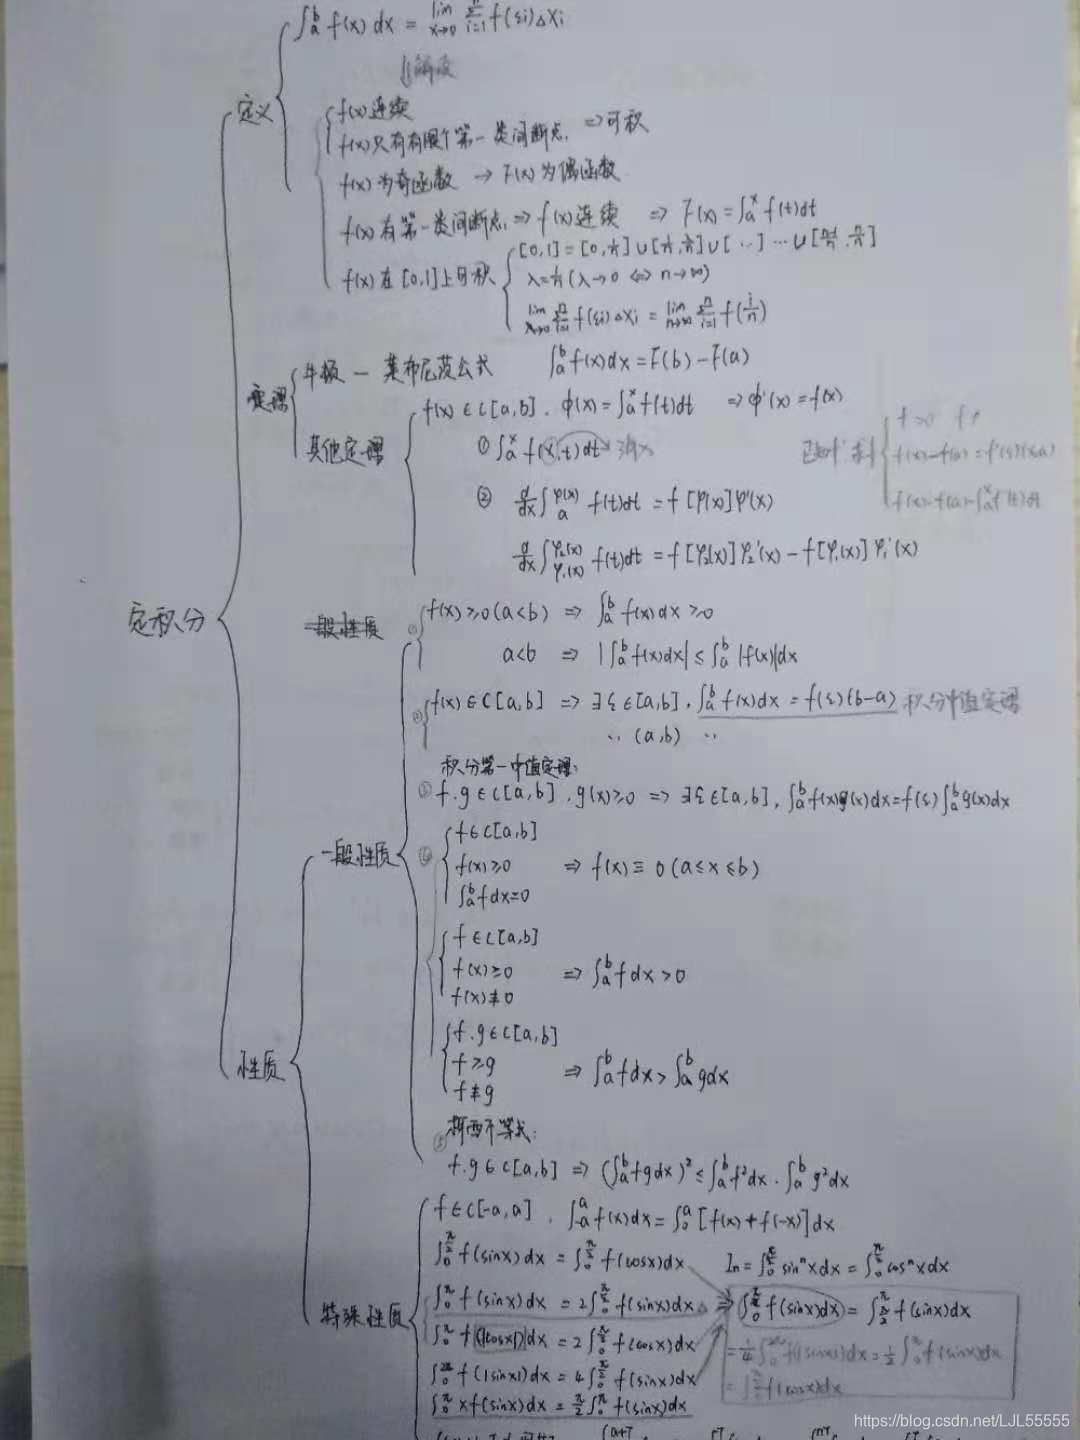 定积分
定义
∫_a^b f(x)dx = lim_{x→0} Σ_{i=1}^n f(ξi)ΔXi
f(x)连续
f(x)只有有限个第一类间断点 ⇒可积
f(x)为奇函数 → F(x)为偶函数
f(x)有第一类间断点 ⇒ f(x)连续 ⇒ F(x)=∫_a^x f(t)dt
f(x)在[0,1]上可积
[0,1]=[0,1/n]∪[1/n,2/n]∪[‥]…∪[n-1/n,n/n]
λ=1/n(λ→0 ⇔ n→∞)
lim Σ_{i=1}^n f(ξi)ΔXi = lim_{n→∞} Σ_{i=1}^n f(i/n)
定理
牛顿—莱布尼茨公式 ∫_a^b f(x)dx=F(b)-F(a)
其他定理
f(x)∈C[a,b]. φ(x)=∫_a^x f(t)dt ⇒φ'(x)=f(x)
① ∫_a^x f(x,t)dt
f(x)-f(a)=f'(ξ)(x-a)
f(x)-f(a)=∫_a^x f'(t)dt
② d/dx ∫_a^{φ(x)} f(t)dt = f[φ(x)]φ'(x)
d/dx ∫_{φ₁(x)}^{φ₂(x)} f(t)dt = f[φ₂(x)]φ₂'(x)-f[φ₁(x)]φ₁'(x)
性质
一般性质
一般性质
① f(x)≥0(a<b) ⇒ ∫_a^b f(x)dx≥0
a<b ⇒ |∫_a^b f(x)dx|≤∫_a^b |f(x)|dx
② f(x)∈C[a,b] ⇒∃ξ∈[a,b],∫_a^b f(x)dx=f(ξ)(b-a) 积分中值定理
‥ (a,b) ‥
积分第一中值定理:
③ f.g∈C[a,b].g(x)≥0 ⇒∃ξ∈[a,b],∫_a^b f(x)g(x)dx=f(ξ)∫_a^b g(x)dx
④ f∈C[a,b]
f(x)≥0 ⇒ f(x)≡0(a≤x≤b)
∫_a^b fdx=0
f∈C[a,b]
f(x)≥0 ⇒∫_a^b fdx>0
f(x)≢0
f.g∈C[a,b]
f≥g ⇒∫_a^b fdx>∫_a^b gdx
f≢g
⑤ 柯西不等式:
f.g∈C[a,b] ⇒(∫_a^b fgdx)²≤∫_a^b f²dx·∫_a^b g²dx
特殊性质
f∈C[-a,a],∫_{-a}^a f(x)dx=∫_0^a [f(x)+f(-x)]dx
∫_0^{π/2} f(sinx)dx=∫_0^{π/2} f(cosx)dx
In=∫_0^{π/2} sinⁿxdx=∫_0^{π/2} cosⁿxdx
∫_0^π f(sinx)dx=2∫_0^{π/2} f(sinx)dx
⇒ ∫_0^{π/2} f(sinx)dx=∫_{π/2}^π f(sinx)dx
∫_0^π f(|cosx|)dx=2∫_0^{π/2} f(cosx)dx
=1/4∫_0^{2π} f(|sinx|)dx=1/2∫_0^π f(sinx)dx
∫_0^{2π} f(|sinx|)dx=4∫_0^{π/2} f(sinx)dx
=∫_0^{π/2} f(cosx)dx
∫_0^π xf(sinx)dx=π/2∫_0^π f(sinx)dx
https://blog.csdn.net/LJL55555